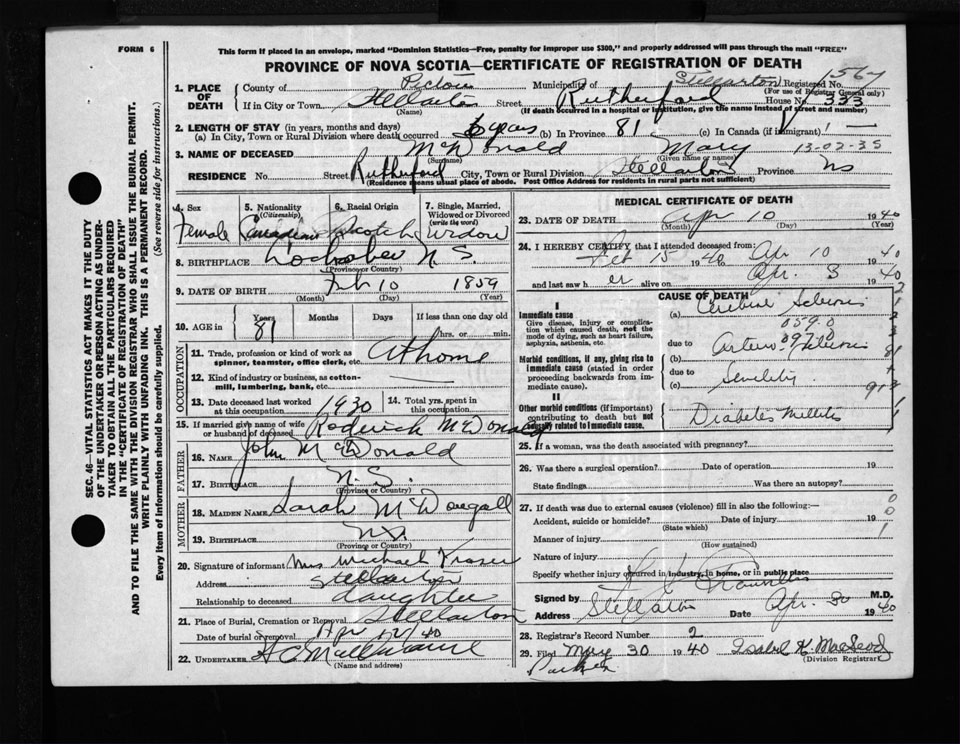 FORM 6
This form if placed in an envelope, marked "Dominion Statistics—Free, penalty for improper use $300," and properly addressed will pass through the mail "FREE"
PROVINCE OF NOVA SCOTIA—CERTIFICATE OF REGISTRATION OF DEATH
1. PLACE OF DEATH County of Pictou Municipality of Stellarton Registered No. 1567
(For use of Registrar General only)
If in City or Town Stellarton Street Rutherford House No. 333
(Name) (If death occurred in a hospital or institution, give the name instead of street and number)
2. LENGTH OF STAY (in years, months and days)
(a) In City, Town or Rural Division where death occurred yrs (b) In Province 81 (c) In Canada (if immigrant) —
3. NAME OF DECEASED McDonald Mary 13-02-35
(Surname) (Given name or names)
RESIDENCE No. Street Rutherford City, Town or Rural Division Stellarton Province NS
(Residence means usual place of abode. Post Office Address for residents in rural parts not sufficient)
4. Sex 5. Nationality (Citizenship) 6. Racial Origin 7. Single, Married, Widowed or Divorced (write the word)
Female Canadian Scotch Widow
8. BIRTHPLACE Lochaber N.S.
(Province or Country)
9. DATE OF BIRTH Feb 10 1859
(Month) (Day) (Year)
10. AGE in Years Months Days If less than one day old
81 hrs. or min.
OCCUPATION
11. Trade, profession or kind of work as spinner, teamster, office clerk, etc. At home
12. Kind of industry or business, as cotton-mill, lumbering, bank, etc. —
13. Date deceased last worked at this occupation 1930 14. Total yrs. spent in this occupation
15. If married give name of wife or husband of deceased Roderick McDonald
FATHER
16. Name John McDonald
17. Birthplace N.S.
(Province or Country)
MOTHER
18. MAIDEN NAME Sarah McDougall
19. BIRTHPLACE N.S.
(Province or Country)
20. Signature of informant Mrs Michael Fraser
Address Stellarton
Relationship to deceased daughter
21. Place of Burial, Cremation or Removal Stellarton
Date of burial or removal Apr 12/40
22. UNDERTAKER
(Name and address)
MEDICAL CERTIFICATE OF DEATH
23. DATE OF DEATH Apr 10 1940
(Month) (Day) (Year)
24. I HEREBY CERTIFY that I attended deceased from
Feb 15 1940 Apr 10 40
and last saw her alive on Apr 3 40
CAUSE OF DEATH
I
Immediate cause
Give disease, injury or complication which caused death, not the mode of dying, such as heart failure, asphyxia, asthenia, etc.
(a) Cerebral Sclerosis
059.0
due to
(b) Arterio Sclerosis
97 0
Morbid conditions, if any, giving rise to immediate cause (stated in order proceeding backwards from immediate cause).
due to
(c) Senility
II
Other morbid conditions (if important) contributing to death but not causally related to immediate cause.
Diabetes Mellitus
25. If a woman, was the death associated with pregnancy?
26. Was there a surgical operation? Date of operation 19
State findings Was there an autopsy?
27. If death was due to external causes (violence) fill in also the following:—
Accident, suicide or homicide? Date of injury 19
(State which)
Manner of injury
(How sustained)
Nature of injury
Specify whether injury occurred in industry, in home, or in public place
Signed by M.D.
Address Stellarton Date Apr. 30 1940
28. Registrar's Record Number 2
29. Filed May 30 1940 Isabel K. MacLeod
(Division Registrar)
SEC. 46—VITAL STATISTICS ACT MAKES IT THE DUTY
OF THE UNDERTAKER OR PERSON ACTING AS UNDERTAKER TO OBTAIN ALL THE PARTICULARS REQUIRED
IN THE "CERTIFICATE OF REGISTRATION OF DEATH"
AND TO FILE THE SAME WITH THE DIVISION REGISTRAR WHO SHALL ISSUE THE BURIAL PERMIT.
WRITE PLAINLY WITH UNFADING INK. THIS IS A PERMANENT RECORD.
Every item of information should be carefully supplied. (See reverse side for instructions.)